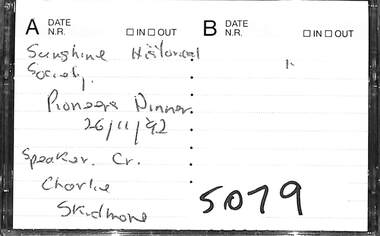 A DATE N.R. □ IN □ OUT
B DATE N.R. □ IN □ OUT
Sunshine Historical
Society.
Pioneers Dinner.
26/11/92
Speaker. Cr.
Charlie
Skidmore
5079